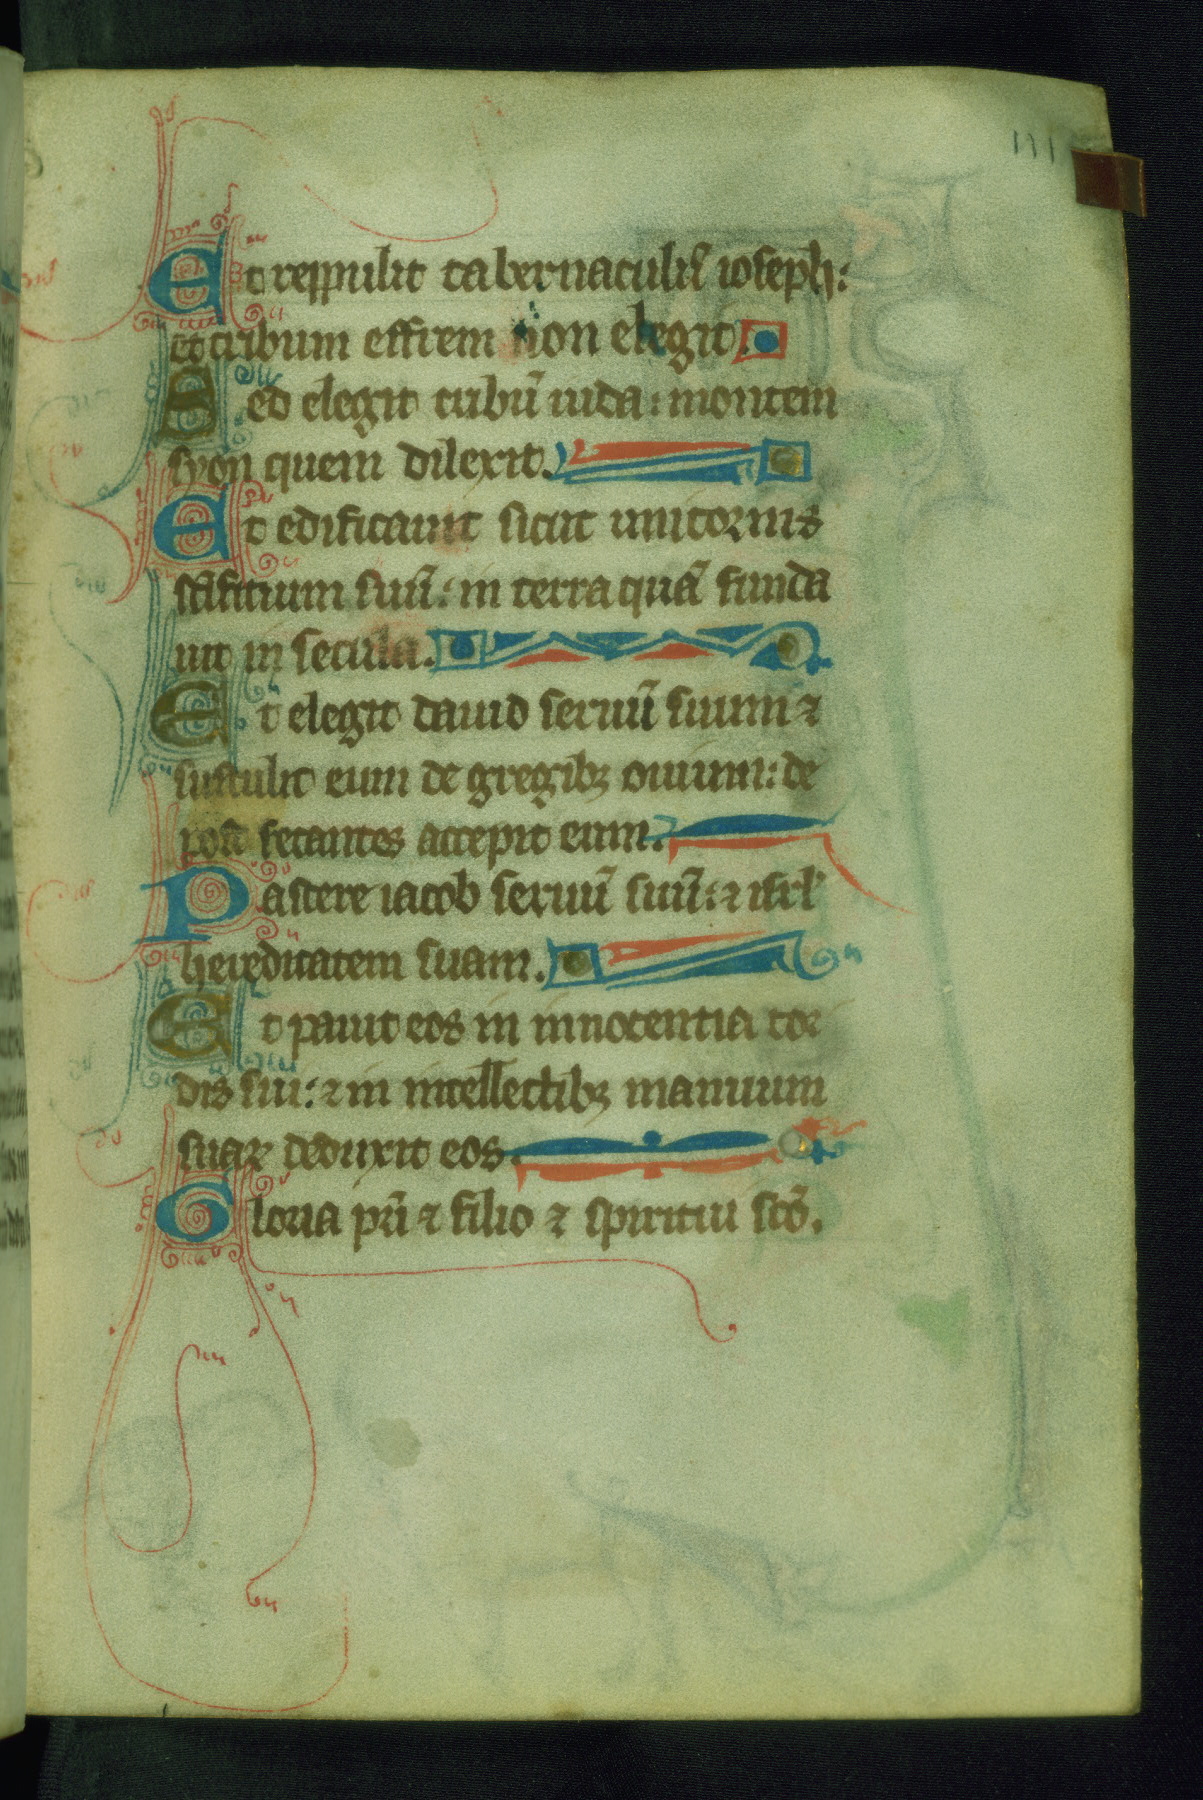 Et reppulit tabernaculũ ioseph:
et tribum effrem non elegit.
Sed elegit tribũ iuda: montem
syon quem dilexit.
Et edificauit sicut unicornis
sc̃ifitium suũ: in terra quã funda
uit in secula.
Et elegit dauid seruũ suum ⁊
sustulit eum de gregibꝫ ouium: de
post fetantes accepit eum.
Pascere iacob seruũ suũ: ⁊ isrl̃
hereditatem suam.
Et pauit eos in innocentia cor
dis sui: ⁊ in intellectibꝫ manuum
suaꝝ deduxit eos.
Gloria pr̃i ⁊ filio ⁊ spiritui sc̃o.